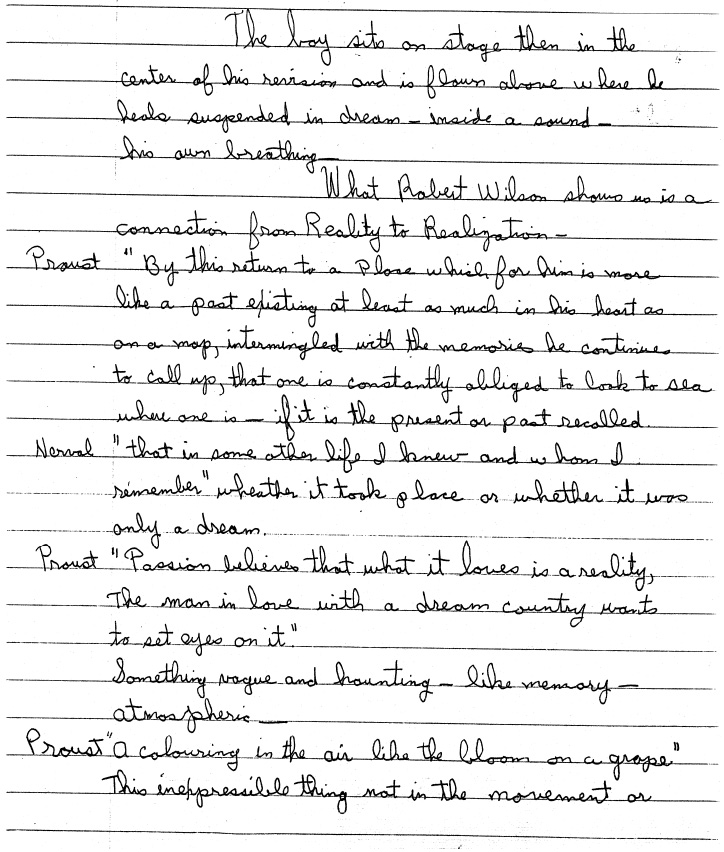 The boy sits on stage then in the
center of his revision and is flown above where he
heals suspended in dream – inside a sound –
his own breathing –
What Robert Wilson shows us is a
connection from Reality to Realization –
Proust "By this return to a Place which, for him is more
like a past existing at least as much in his heart as
on a map, intermingled with the memories he continues
to call up, that one is constantly obliged to look to sea
where one is – if it is the present or past recalled.
Nerval "that in some other life I knew and whom I
remember" wheather it took place or whether it was
only a dream.
Proust "Passion believes that what it loves is a reality,
The man in love with a dream country wants
to set eyes on it"
Something vague and haunting – like memory –
atmospheric —
Proust "A colouring in the air like the bloom on a grape"
This inexpressible thing not in the movement or